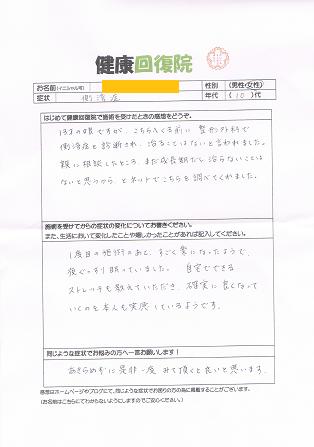 健康回復院
お名前(イニシャル可)
性別 (男性・女性)
症状 側湾症
年代 (10)代
はじめて健康回復院で施術を受けたときの感想をどうぞ。
13才の娘ですが、こちらへくる前に整形外科で
側湾症と診断され、治ることはないと言われました。
親に相談したところ まだ成長期だし治らないことは
ないと思うから とネットでこちらを調べてくれました。
施術を受けてからの症状の変化についてお書きください。
また、生活において変化したことや嬉しかったことがあれば記入してください。
1度目の施術のあと、すごく楽になったようで、
夜ぐっすり眠っていました。 自宅でできる
ストレッチも教えていただき、確実に良くなって
いくのを本人も実感しているようです。
同じような症状でお悩みの方へ一言お願いします!
あきらめずに是非一度 みて頂くと良いと思います。
感想はホームページやブログにて、同じような症状でお困りの方の為に掲載することがございます。
(お名前はこちらにてわからないようにしますのでご安心ください。)